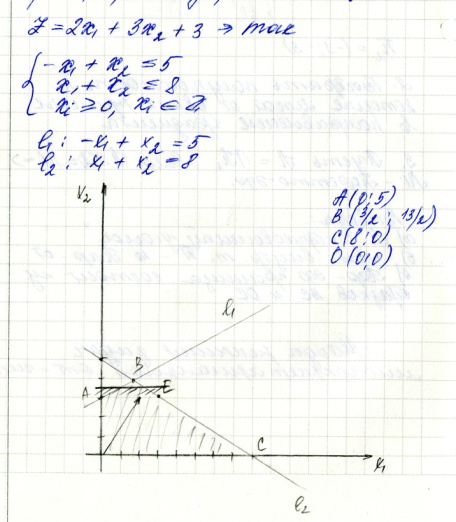 Z = 2x₁ + 3x₂ + 3 → max
-x₁ + x₂ ≤ 5
x₁ + x₂ ≤ 8
xᵢ ≥ 0, xᵢ ∈ Z
l₁: -x₁ + x₂ = 5
l₂: x₁ + x₂ = 8
A(0;5)
B(3/2; 13/2)
C(8;0)
O(0;0)
x₂
l₁
B
A
E
C
x₁
l₂